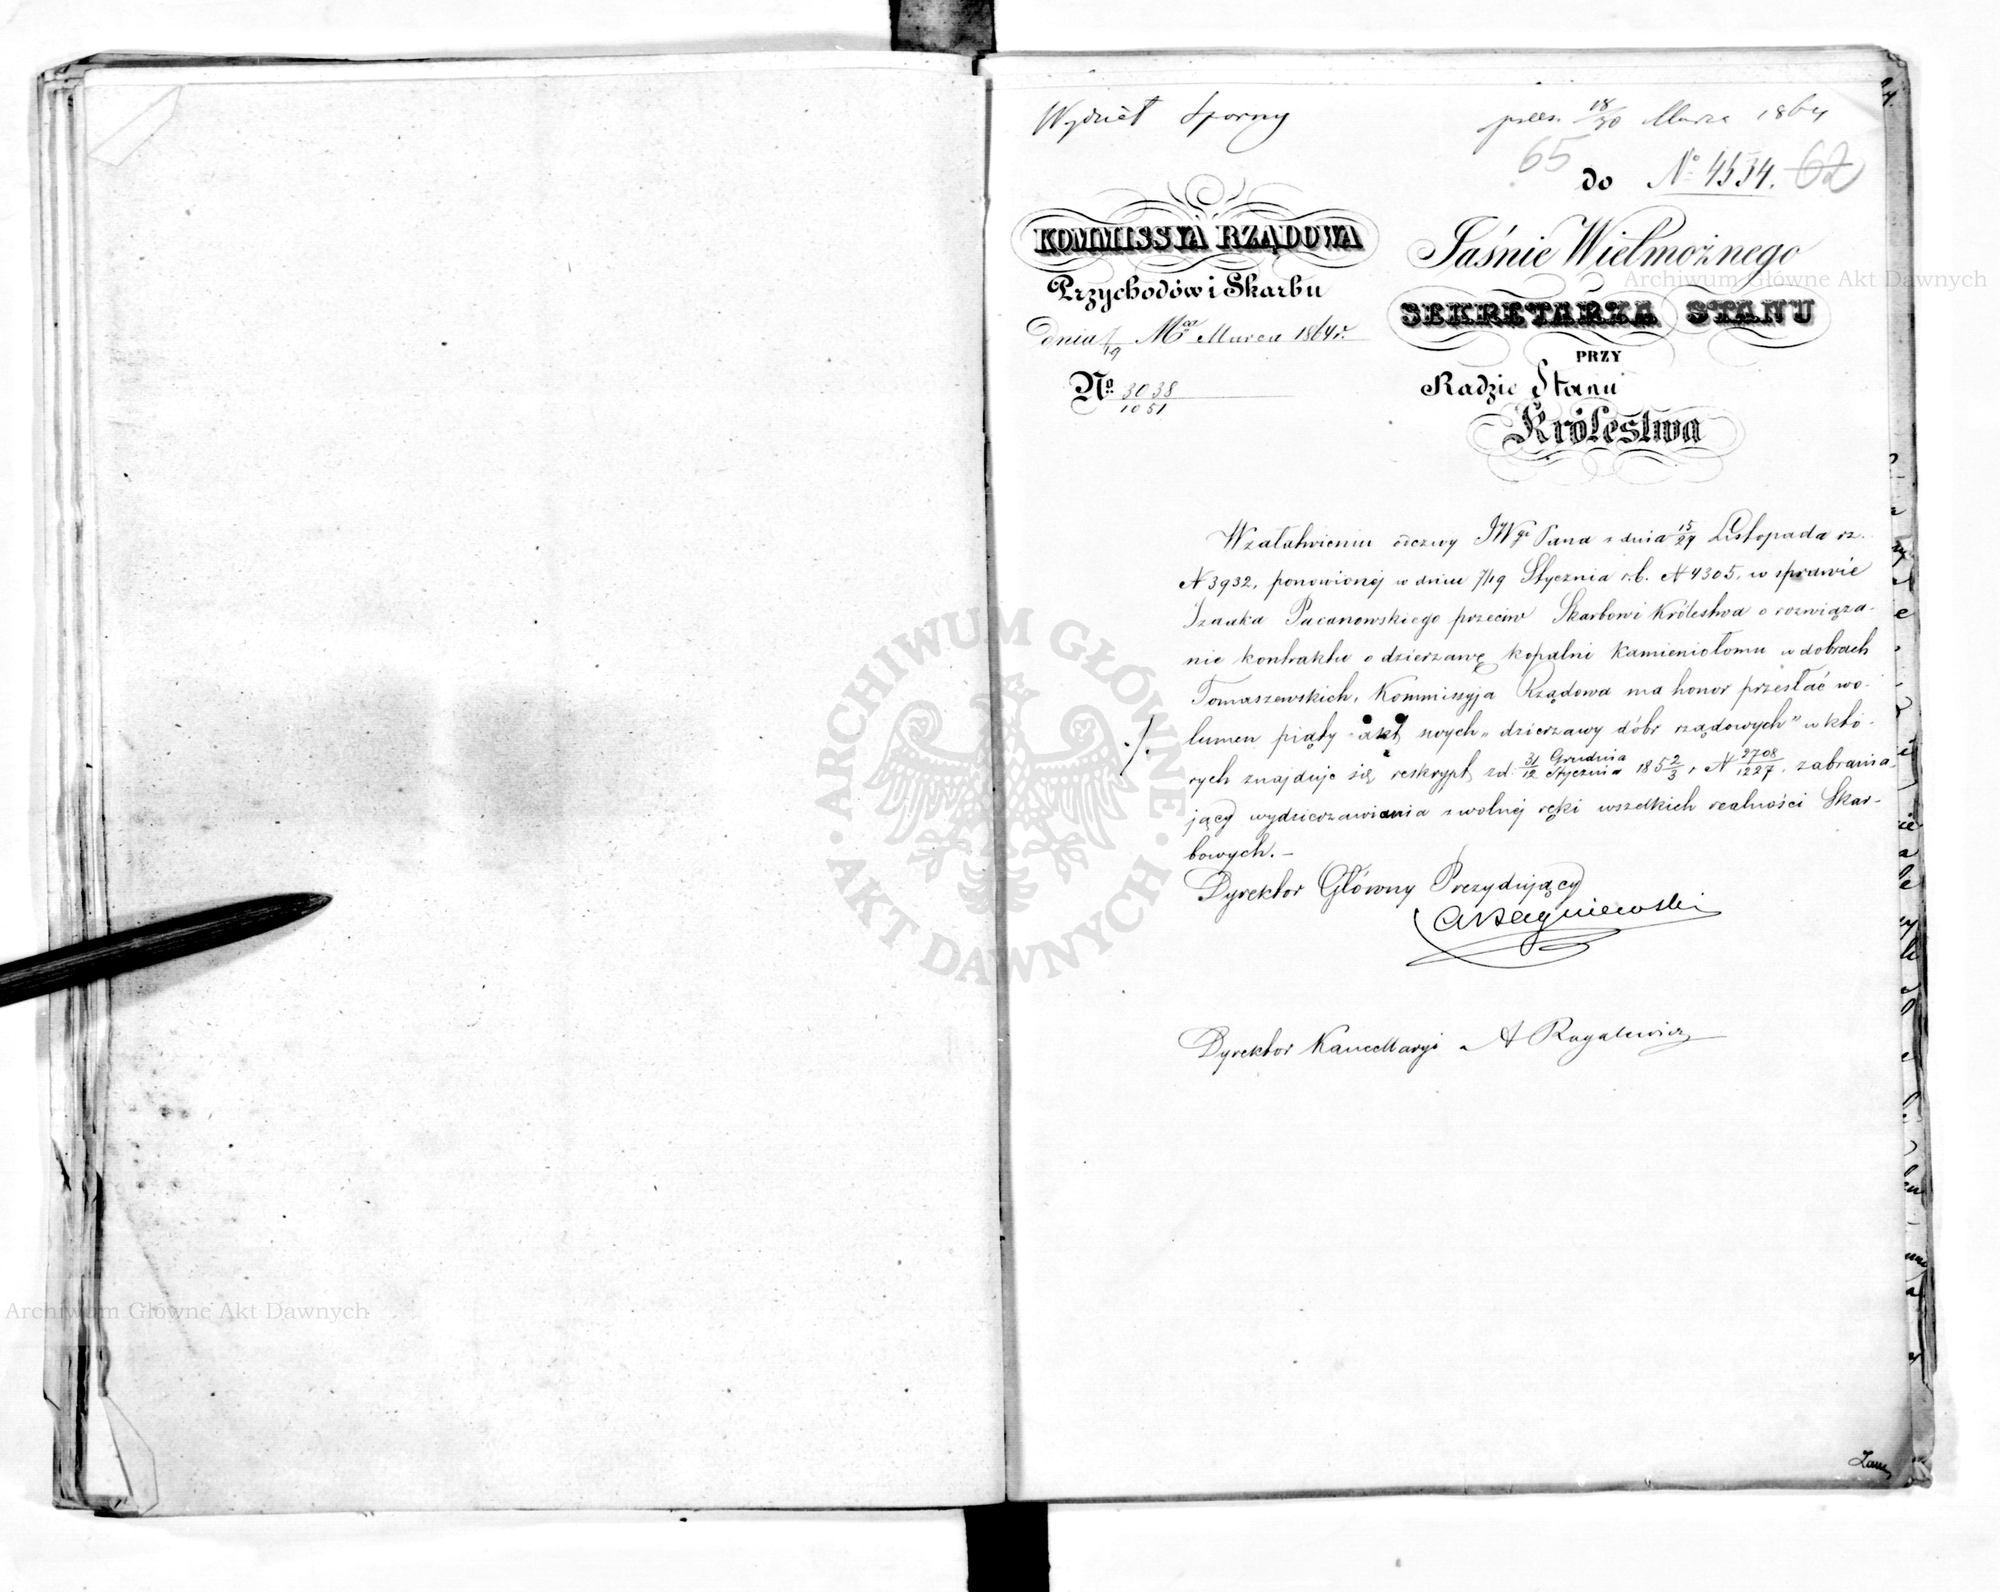 Wydział Sporny
prez. 18/30 Marca 1864
65 do N° 4534. 62
KOMMISSYA RZĄDOWA
Przychodów i Skarbu
dnia 7/19 Mca Marca 1864 r.
No. 3038/1051
Jaśnie Wielmożnego
SEKRETARZA STANU
PRZY
Radzie Stanu
Królestwa
W załatwieniu odezwy JWgo Pana z dnia 15/27 Listopada rz.
N 3932, ponowionéj w dniu 7/19 Stycznia r.b. N 4305, w sprawie
Izaaka Pacanowskiego przeciw Skarbowi Królestwa o rozwiąza-
nie kontraktu o dzierzawę kopalni kamieniołomu w dobrach
Tomaszewskich, Kommissyja Rządowa ma honor przesłać wo-
./. lumen piąty akt nowych „dzierzawy dóbr rządowych" w któ-
rych znajduje się reskrypt zd. 31/12 Grudnia/Stycznia 185 2/3 r N 9708/1227. zabrania-
jący wydzierzawiania z wolnéj ręki wszelkich realności Skar-
bowych. —
Dyrektor Główny Prezydujący
Bagniewski
Dyrektor Kancellaryi A Rogalewicz
Archiwum Główne Akt Dawnych
ARCHIWUM GŁÓWNE · AKT DAWNYCH ·
Archiwum Główne Akt Dawnych